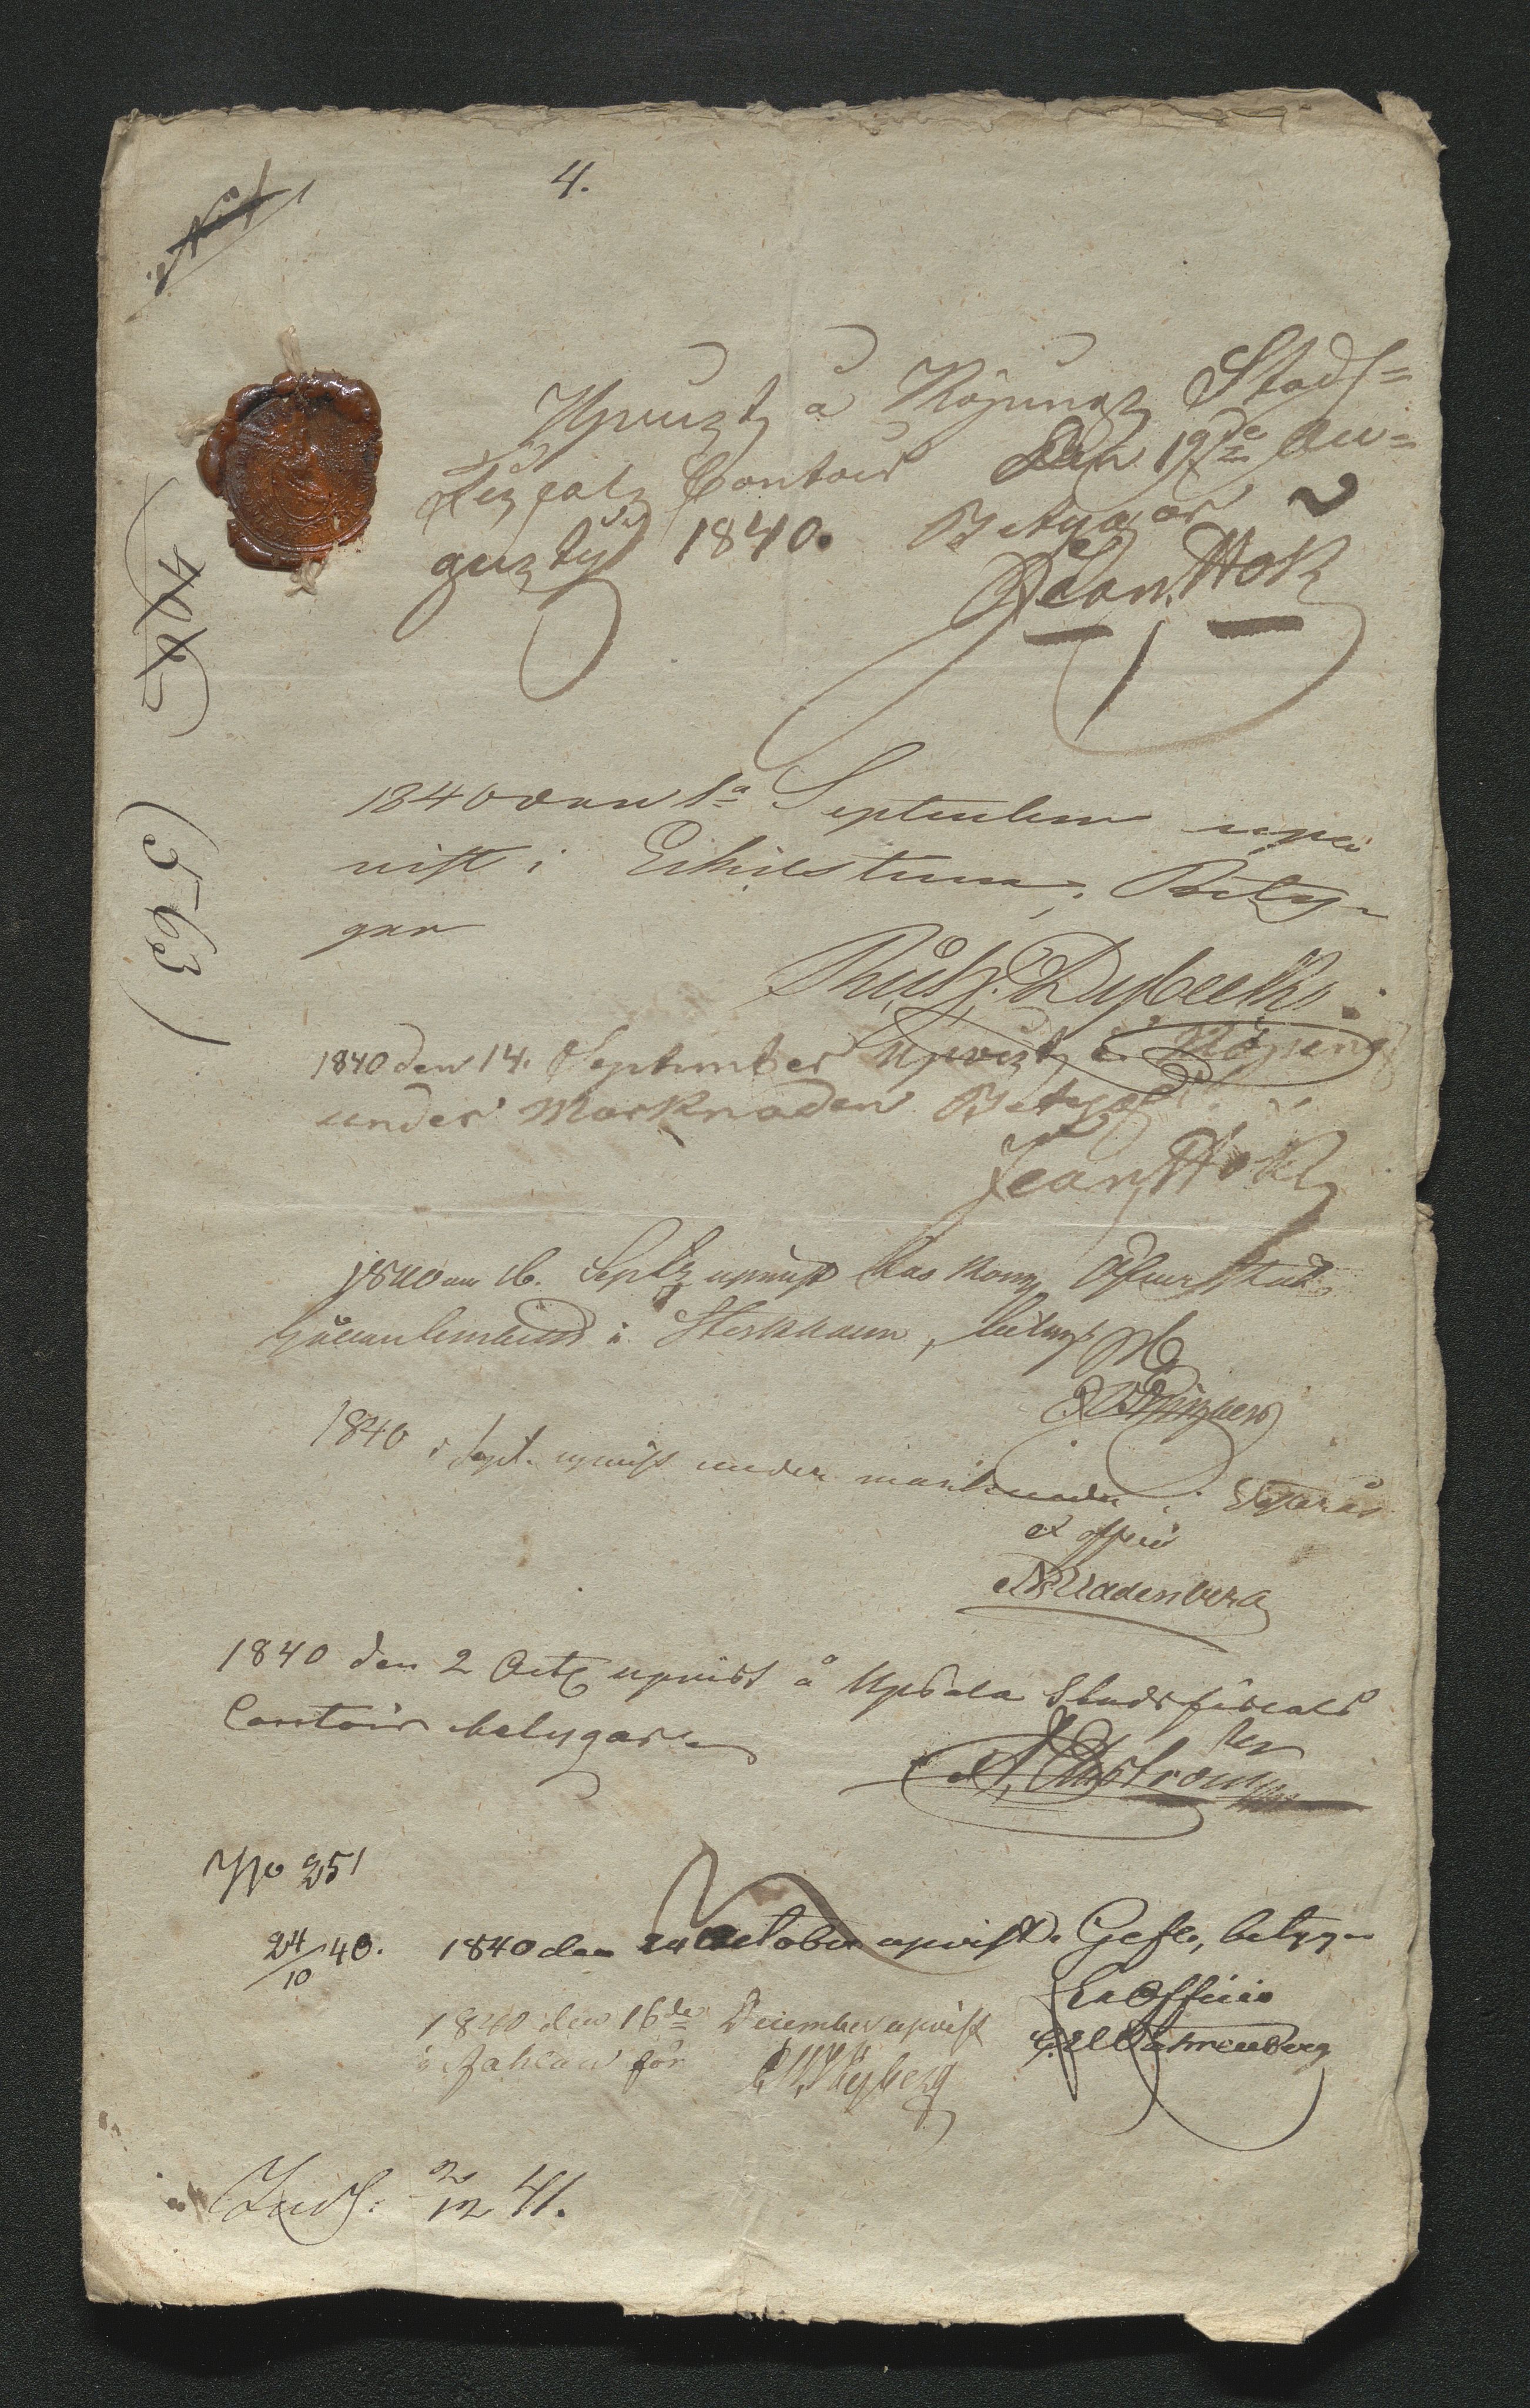 4.
No 1
Upvist å Köpings Stads=
Fiscals Contoir den 19de Au=
gusty 1840. Betygar
Jean Hök
5404
(563)
1840 den 1a September upp
vist i Eskilstuna, Bety-
gar
1840 den 14. September Upvist i Köping
under Marknaden Betyg
Jean Hök
1840 den 16. Sept upvist hos Kongl Öfver Ståt-
hållareembetet i Stockholm, betyg
1840 i Sept. upvist under marknaden i Westerås
ex officio
1840 den 2 Oct upvist å Upsala Stadsfiscals
Contoir betygar
No 251
24/10 40.
1840 den 24 October upvist i Gefle, betyg-
Ex Officio
1840 den 16de December upvist
i Fahlun för
2/12 41.